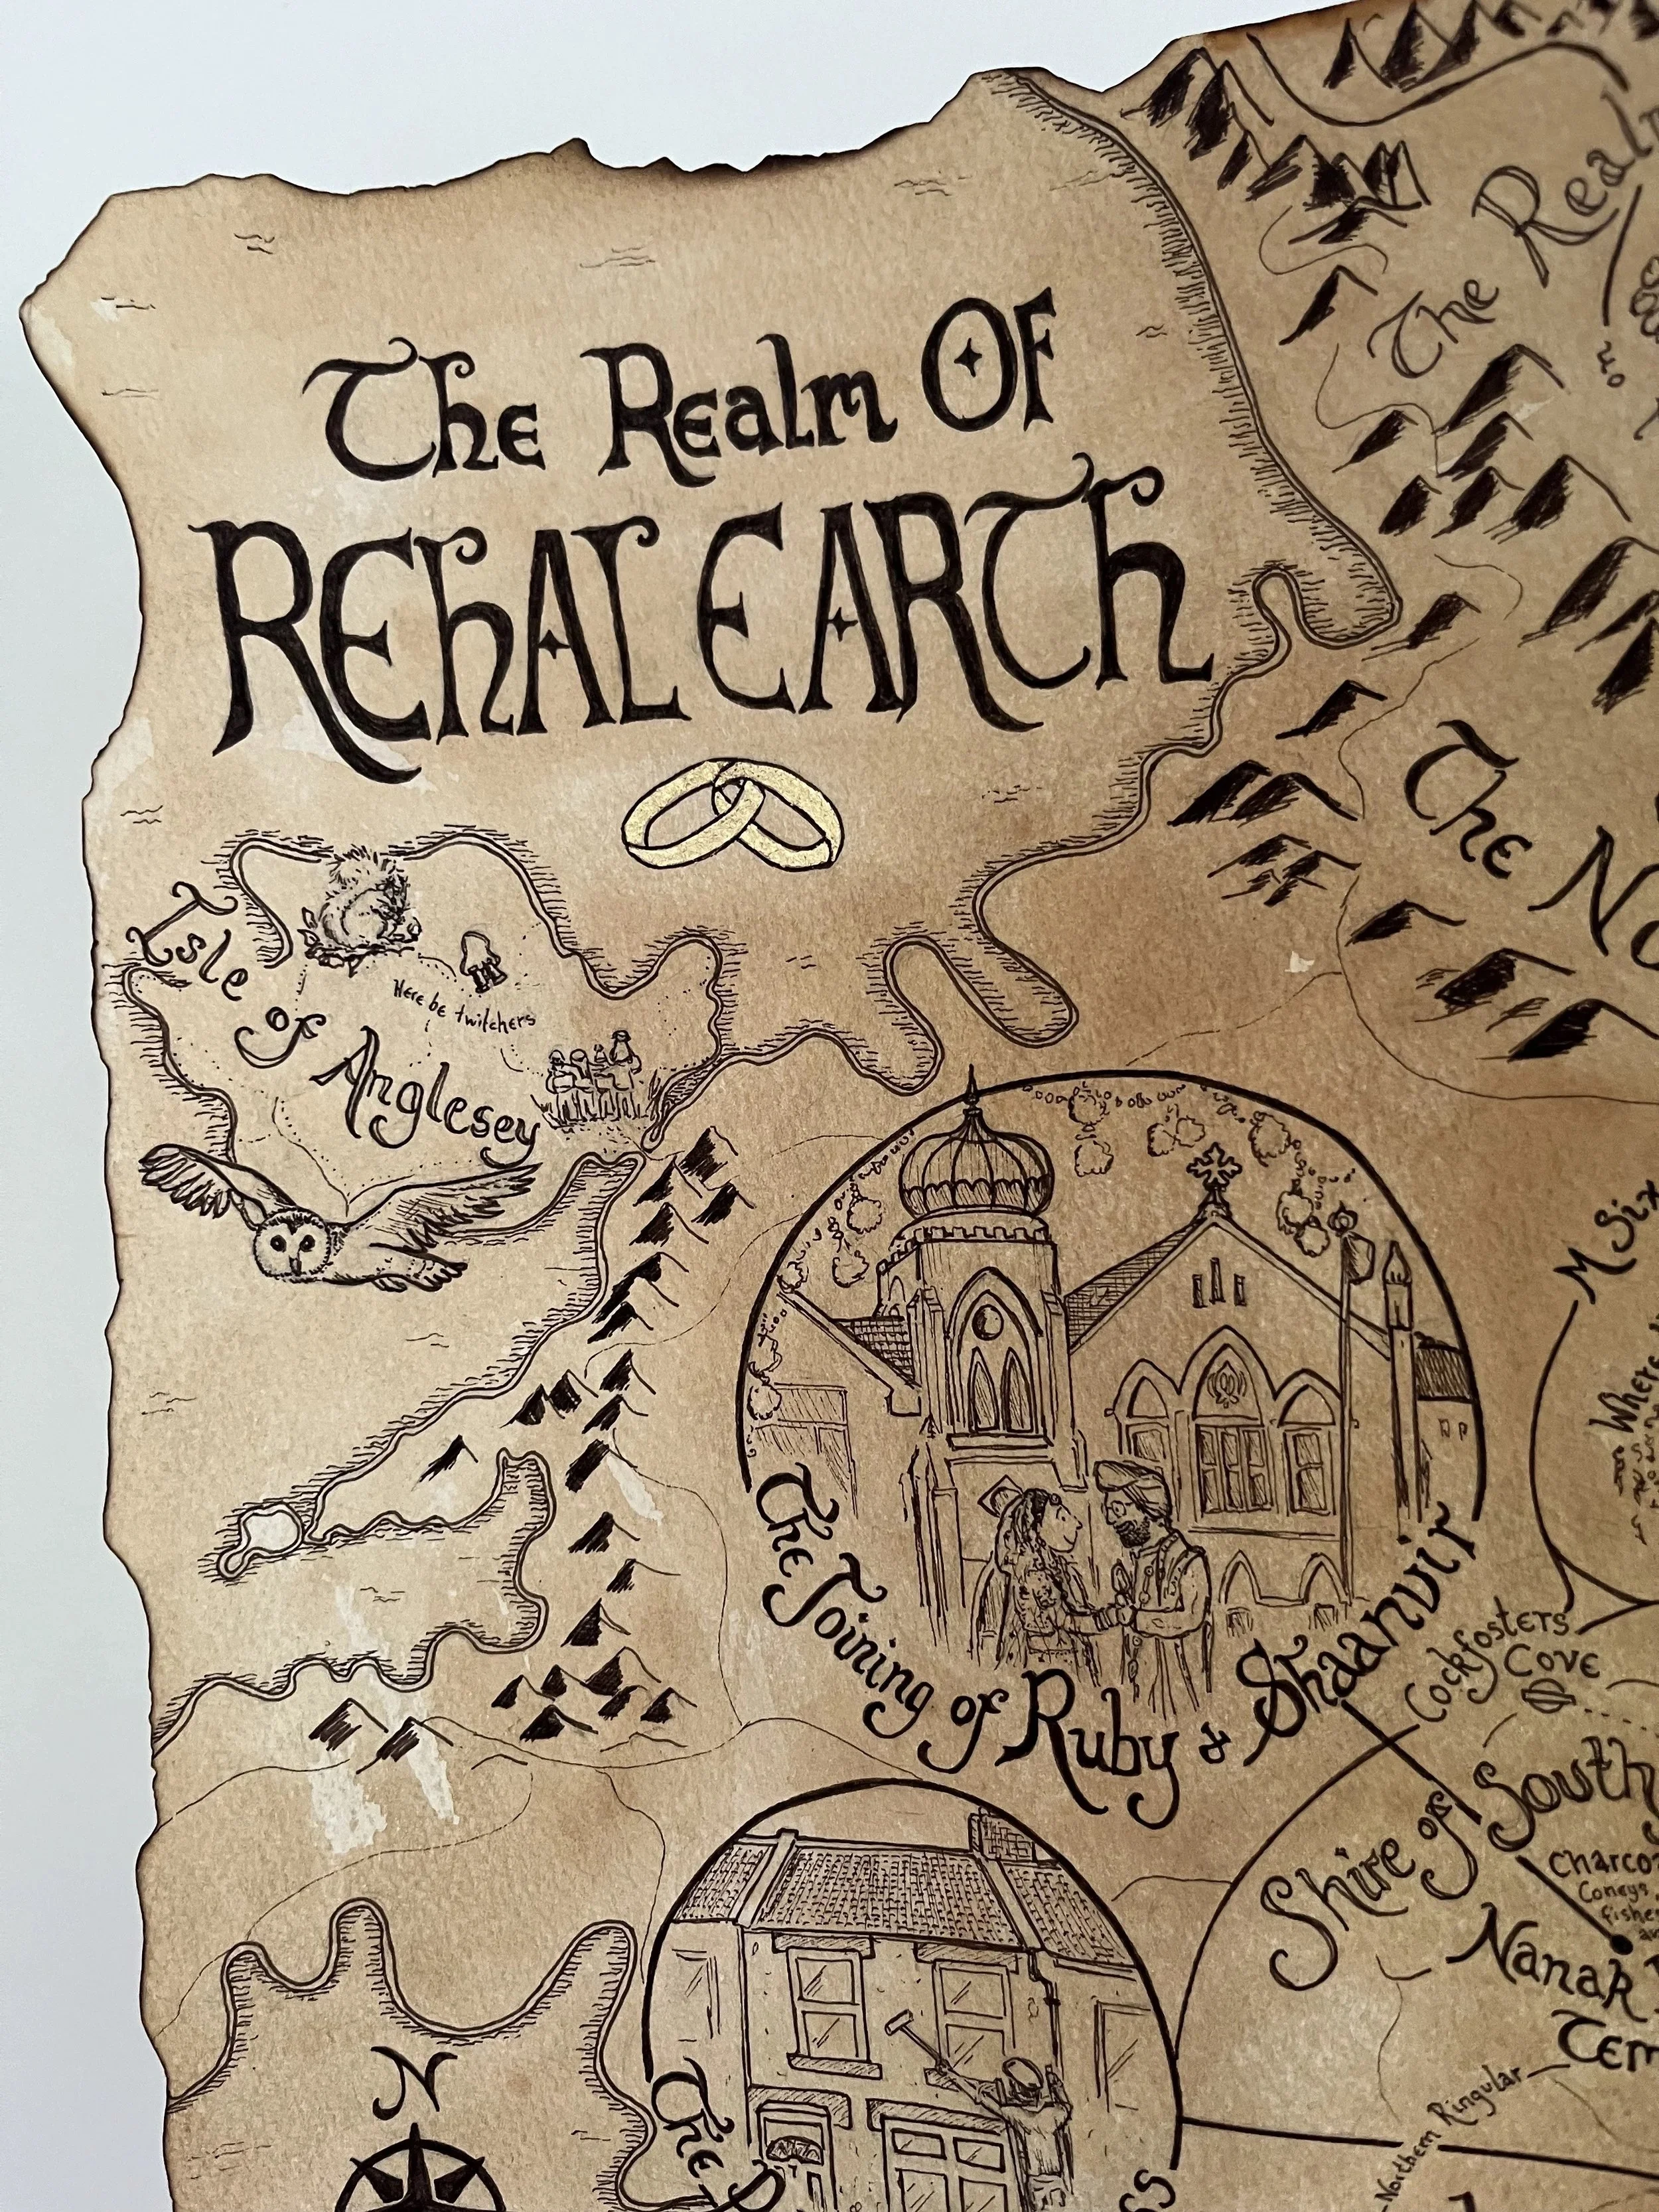 The Realm OF
REhAL EARTh
The Realm
The
Isle of Anglesey
Here be twitchers
The Joining of Ruby & Shaanvir
M Six
Where
Cockfosters
Cove
Shire of South
Charco
Coneys
fishe
Nanak
Tem
Northern Ringular
N
The